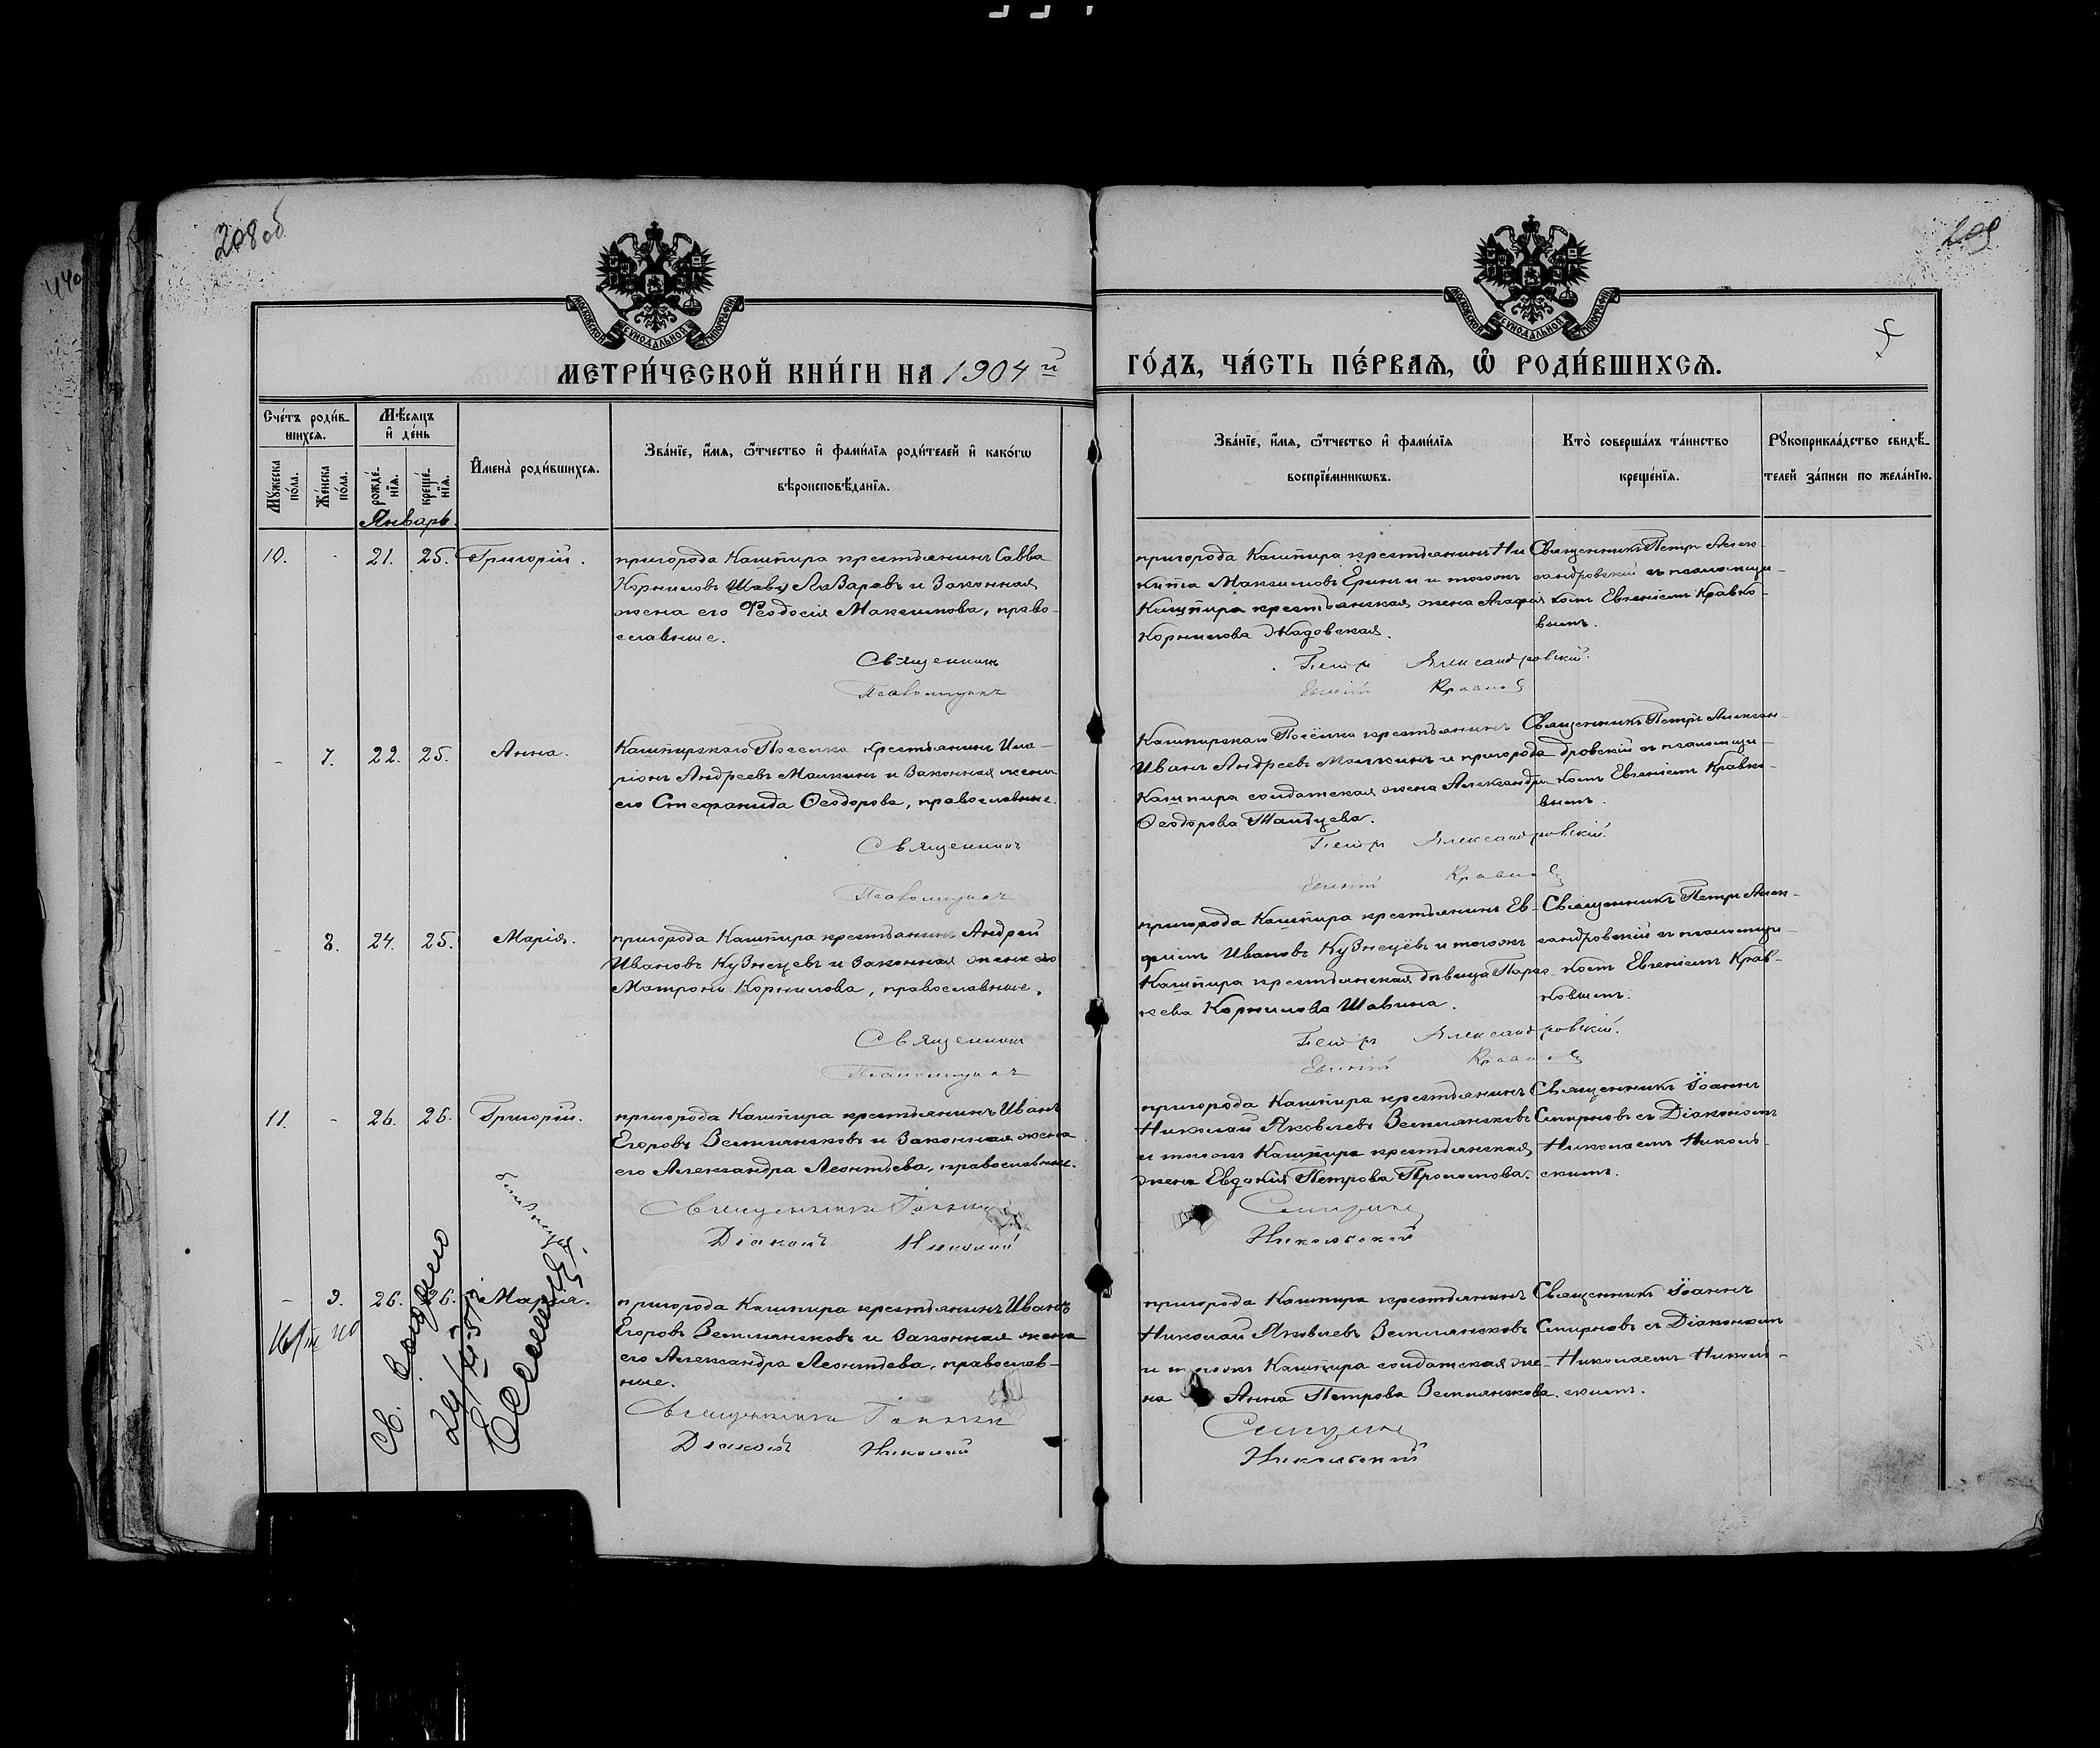 208 об
209
МОСКОВСКОЙ СУНОДАЛЬНОЙ ТИПОГРАФІИ
МОСКОВСКОЙ СУНОДАЛЬНОЙ ТИПОГРАФІИ
МЕТРИ́ЧЕСКОЙ КНИ́ГИ НА 1904 й
ГО́ДЪ, ЧА́СТЬ ПЕ́РВАѦ, Ѡ РОДИ́ВШИХСѦ.
Сче́тъ роди́в-
шихсѧ.
Мꙋ́жеска по́ла.
Же́нска по́ла.
Мѣ́сѧцъ и҆ де́нь
рожде́нїѧ.
креще́нїѧ.
Январь.
И҆мена̀ роди́вшихсѧ.
Зва́нїе, и҆́мѧ, ѻ҆́тчество и҆ фами́лїѧ роди́телей и҆ како́гѡ
вѣроисповѣ́данїѧ.
Зва́нїе, и҆́мѧ, ѻ҆́тчество и҆ фами́лїѧ
воспрїе́мникѡвъ.
Кто̀ соверша́лъ та́инство
креще́нїѧ.
Рꙋкоприкла́дство свидѣ́-
телей за́писи по жела́нїю.
10. - 21. 25. Григорій.
пригорода Кашпира крестьянинъ Савва
Корниловъ Лазаревъ и законная
жена его Феодосія Максимова, право-
славные.
Священникъ
Псаломщикъ
пригорода Кашпира крестьянинъ Ни
кита Максимовъ Еринъ и тогожъ
Кашпира крестьянская жена Агафія
Корнилова Жадовская.
Петръ Александровскій.
Евгеній Кравковъ
Священникъ Петръ Алек-
сандровскій съ псаломщи-
комъ Евгеніемъ Кравко-
вымъ.
- 7. 22. 25. Анна.
Кашпирскаго Поселка крестьянинъ Ила-
ріонъ Андреевъ Малкинъ и законная жена
его Стефанида Ѳеодорова, православные.
Священникъ
Псаломщикъ
Кашпирскаго Посёлка крестьянинъ
Иванъ Андреевъ Малкинъ и пригорода
Кашпира солдатская жена Александра
Ѳеодорова
Петръ Александровскій.
Евгеній Кравковъ
Священникъ Петръ Алексан-
дровскій съ псаломщи-
комъ Евгеніемъ Кравко-
вымъ.
- 8. 24. 25. Марія.
пригорода Кашпира крестьянинъ Андрей
Ивановъ Кузнецевъ и законная жена его
Матрона Корнилова, православные.
Священникъ
Псаломщикъ
пригорода Кашпира крестьянинъ Ев-
фимъ Ивановъ Кузнецёвъ и тогожъ
Кашпира крестьянская дѣвица Парас-
кева Корнилова Шавина.
Петръ Александровскій.
Евгеній Кравковъ
Священникъ Петръ Алек-
сандровскій съ псаломщи-
комъ Евгеніемъ Крав-
ковымъ.
11. - 26. 26. Григорій.
пригорода Кашпира крестьянинъ Иванъ
Егоровъ Земляниковъ и законная жена
его Александра Леонтьева, православные.
Священникъ Іоаннъ
Діаконъ Николай
пригорода Кашпира крестьянинъ
Николай Яковлевъ Земляниковъ
и тогожъ Кашпира крестьянская
жена Евдокія Петрова
Смирновъ
Никольскій
Священникъ Іоаннъ
Смирновъ съ Діакономъ
Николаемъ Николь-
скимъ.
- 9. 26. 26. Марія.
пригорода Кашпира крестьянинъ Иванъ
Егоровъ Земляниковъ и законная жена
его Александра Леонтьева, православ-
ные.
Священникъ Іоаннъ
Діаконъ Николай
пригорода Кашпира крестьянинъ
Николай Яковлевъ Земляниковъ
и тогожъ Кашпира солдатская же-
на Анна Петрова Земляникова.
Смирновъ
Никольскій
Священникъ Іоаннъ
Смирновъ съ Діакономъ
Николаемъ Николь-
скимъ.